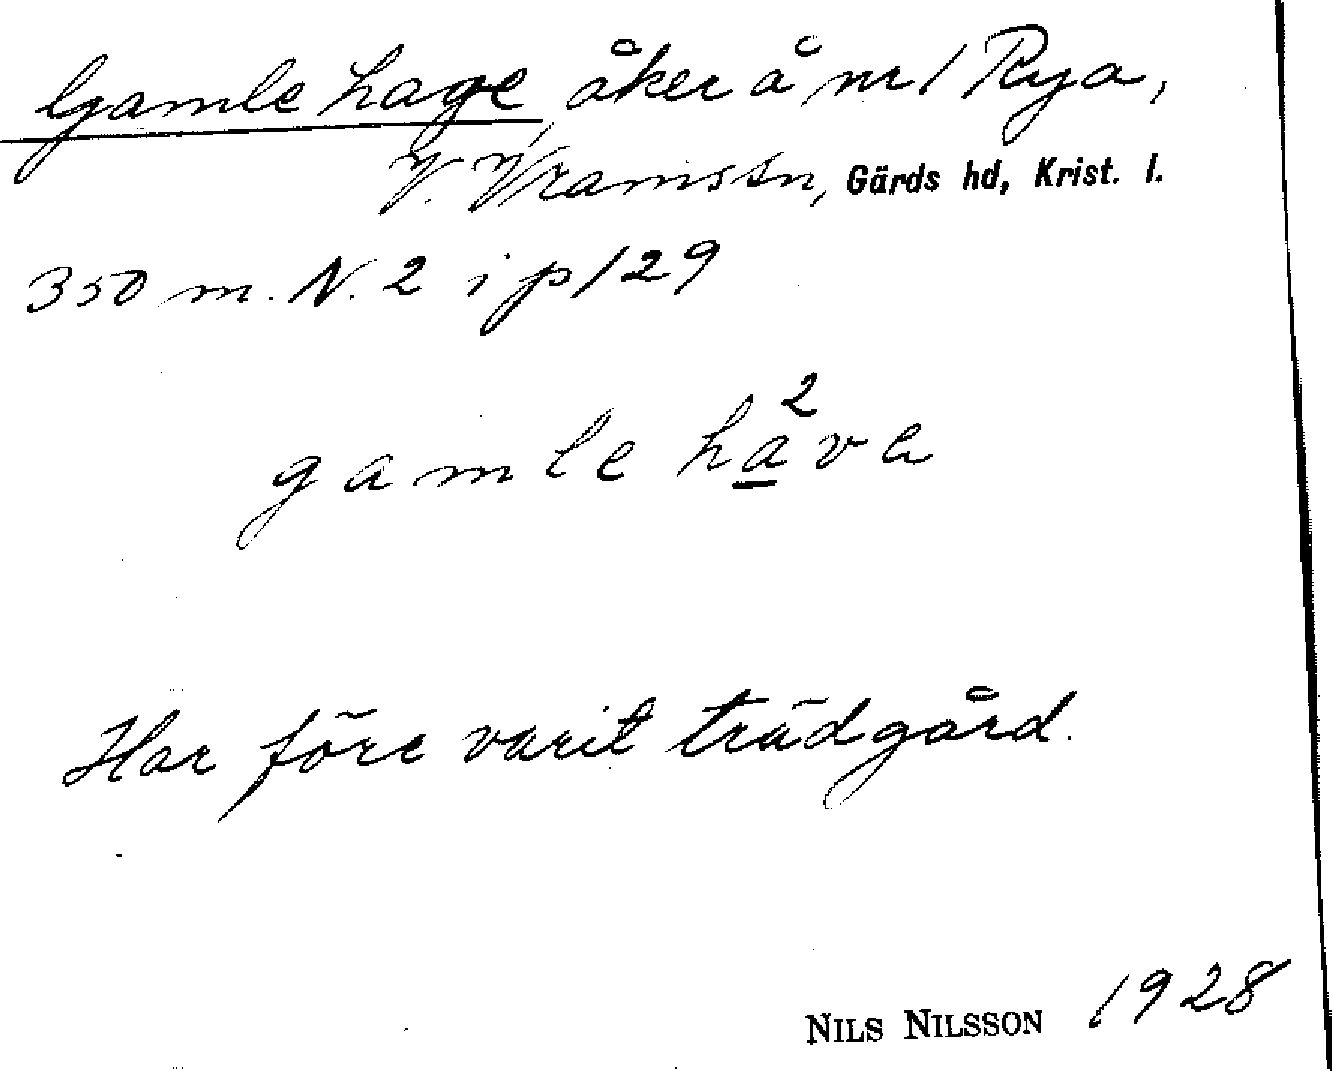 Gamle hage, åker å nr 1 Rya,
V. Vram sn, Gärds hd, Krist. l.
350 m. N. 2 i p 129
2
gamle have
Har före varit trädgård.
NILS NILSSON 1928